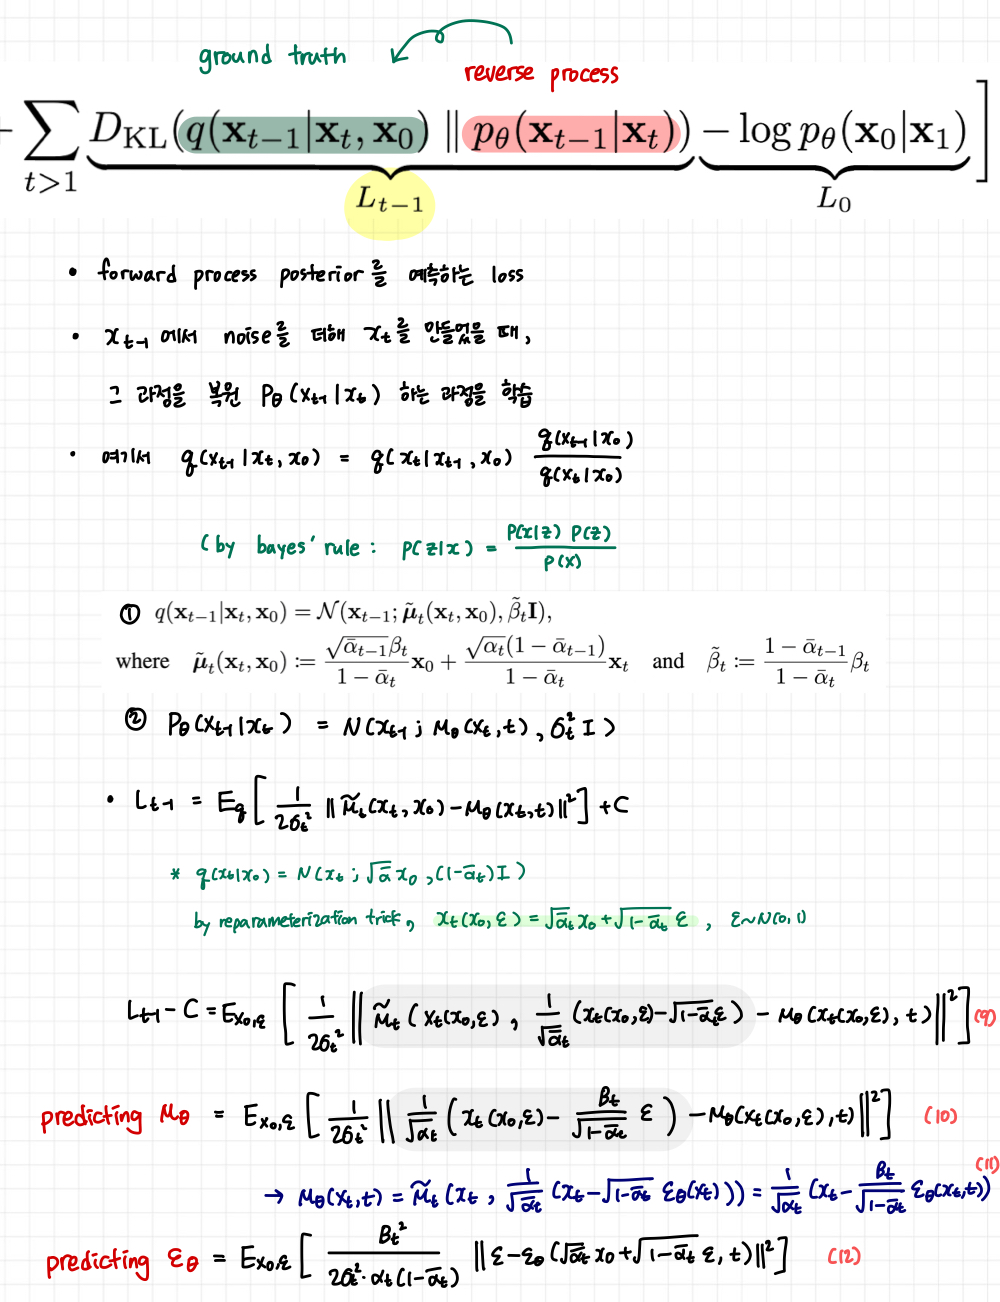 ground truth
reverse process
+ ∑_{t>1} D_KL(q(x_{t−1}|x_t, x_0) ‖ p_θ(x_{t−1}|x_t)) − log p_θ(x_0|x_1) ]
L_{t−1} L_0
• forward process posterior를 예측하는 loss
• x_{t-1} 에서 noise를 더해 x_t를 만들었을 때,
그 과정을 복원 P_θ(x_{t-1}|x_t) 하는 과정을 학습
• 여기서 q(x_{t-1}|x_t, x_0) = q(x_t|x_{t-1}, x_0) q(x_{t-1}|x_0) / q(x_t|x_0)
(by bayes' rule : P(z|x) = P(x|z) P(z) / P(x)
① q(x_{t−1}|x_t, x_0) = N(x_{t−1}; μ̃_t(x_t, x_0), β̃_t I),
where μ̃_t(x_t, x_0) := (√ᾱ_{t−1} β_t)/(1 − ᾱ_t) x_0 + (√α_t(1 − ᾱ_{t−1}))/(1 − ᾱ_t) x_t and β̃_t := (1 − ᾱ_{t−1})/(1 − ᾱ_t) β_t
② P_θ(x_{t-1}|x_t) = N(x_{t-1} ; μ_θ(x_t, t), σ_t² I)
• L_{t-1} = E_q [ 1/(2σ_t²) ‖ μ̃_t(x_t, x_0) − μ_θ(x_t, t) ‖² ] + C
* q(x_t|x_0) = N(x_t ; √ᾱ x_0, (1−ᾱ_t) I)
by reparameterization trick, x_t(x_0, ε) = √ᾱ_t x_0 + √(1−ᾱ_t) ε , ε~N(0, 1)
L_{t-1} − C = E_{x_0,ε} [ 1/(2σ_t²) ‖ μ̃_t ( x_t(x_0, ε) , 1/√ᾱ_t (x_t(x_0, ε) − √(1−ᾱ_t) ε) − μ_θ (x_t(x_0, ε), t) ‖² ] (9)
predicting μ_θ = E_{x_0,ε} [ 1/(2σ_t²) ‖ 1/√α_t ( x_t(x_0, ε) − β_t/√(1−ᾱ_t) ε ) − μ_θ(x_t(x_0, ε), t) ‖² ] (10)
→ μ_θ(x_t, t) = μ̃_t (x_t , 1/√ᾱ_t (x_t − √(1−ᾱ_t) ε_θ(x_t))) = 1/√α_t (x_t − β_t/√(1−ᾱ_t) ε_θ(x_t, t)) (11)
predicting ε_θ = E_{x_0,ε} [ β_t² / (2σ_t² · α_t(1−ᾱ_t)) ‖ ε − ε_θ (√ᾱ_t x_0 + √(1−ᾱ_t) ε, t) ‖² ] (12)